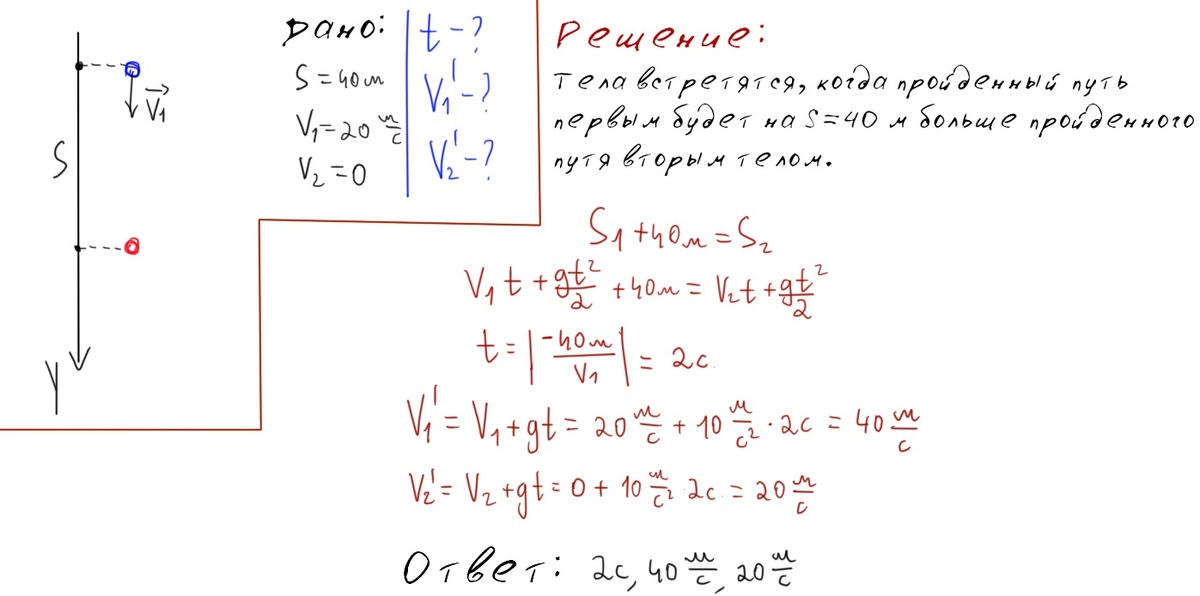 V₁
S
Y
Дано:
S = 40 м
V₁ = 20 м/с
V₂ = 0
t - ?
V₁' - ?
V₂' - ?
Решение:
Тела встретятся, когда пройденный путь
первым будет на S=40 м больше пройденного
путя вторым телом.
S₁ + 40м = S₂
V₁t + gt²/2 + 40м = V₂t + gt²/2
t = |-40м/V₁| = 2с
V₁' = V₁ + gt = 20 м/с + 10 м/с² · 2с = 40 м/с
V₂' = V₂ + gt = 0 + 10 м/с² · 2с = 20 м/с
Ответ: 2с, 40 м/с, 20 м/с